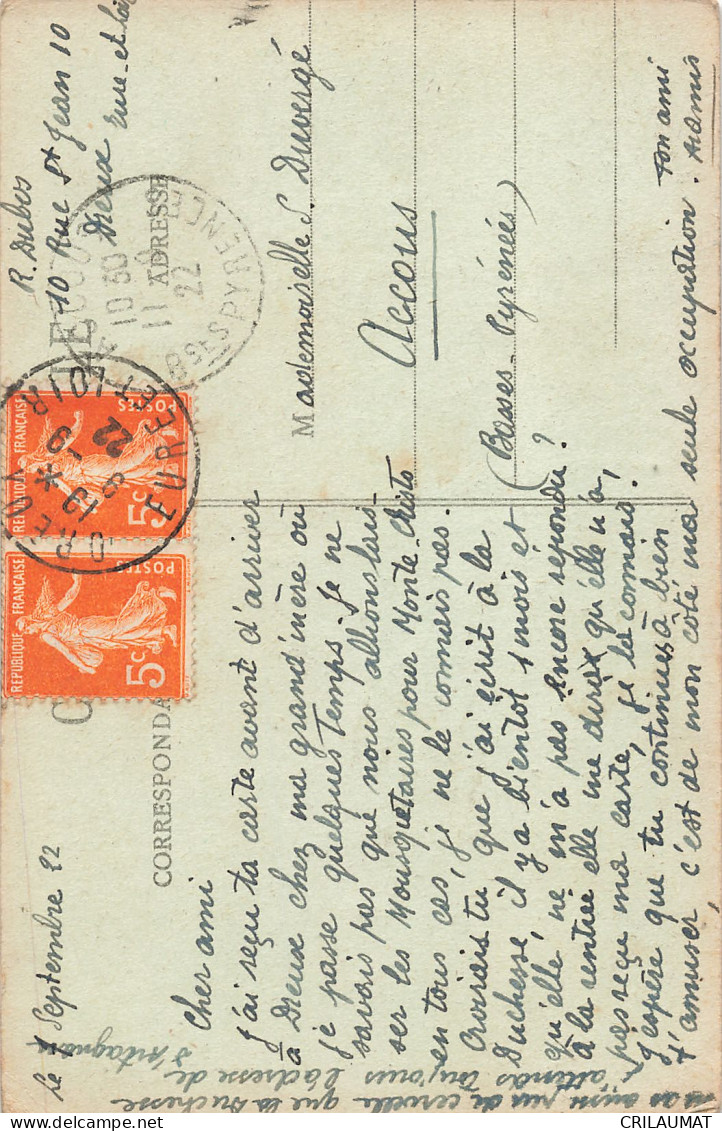 le 7 Septembre 22
CORRESPONDA
Cher ami
J'ai reçu ta carte avant d'arriver
à Dreux chez ma grand'mère où
je passe quelques temps. Je ne
savais pas que nous allions lais-
ser les Mousquetaires pour Monte-Christo
en tous cas, je ne le connais pas.
Croirais tu que j'ai écrit à la
Duchesse, il y a bientôt 1 mois et
qu'elle ne m'a pas encore répondu?
à la rentrée elle me dira qu'elle n'a,
pas reçu ma carte, je la connais.
J'espère que tu continues à bien
t'amuser, c'est de mon côté ma seule occupation.
ton ami
Aramis
aussi peu de cervelle que la Duchesse
j'attends toujours l'adresse de
d'Artagnan
R. Dubos
10 Rue St Jean 10
Dreux Eure-et-Loir
ADRESSE
Mademoiselle S. Duvergé
Accous
(Basses-Pyrénées)
REPUBLIQUE FRANÇAISE
POSTES
5c
REPUBLIQUE FRANÇAISE
POSTES
5c
DREUX
EURE ET LOIR
13
8-9
22
10 50
11
22
BSES PYRENEES
CRILAUMAT